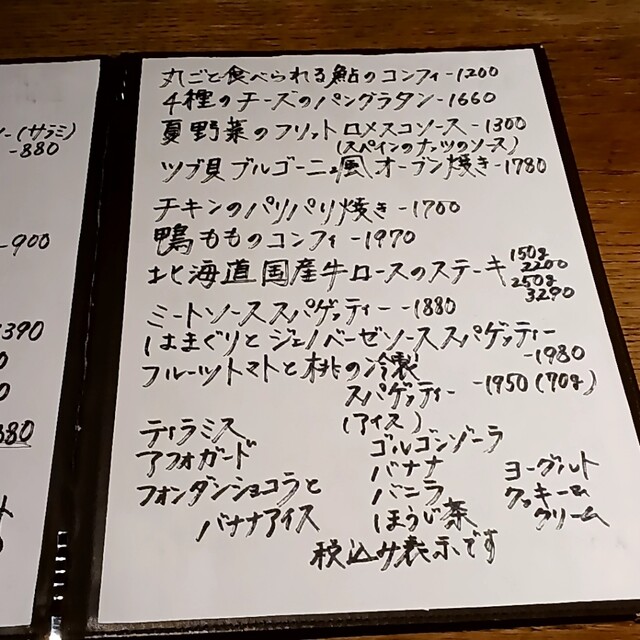 ー(サラミ)
-880
-900
1390
0
0
880
丸ごと食べられる鮎のコンフィ-1200
4種のチーズのパングラタン-1660
夏野菜のフリットロメスコソース-1300
(スペインのナッツのソース)
ツブ貝ブルゴーニュ風オーブン焼き-1780
チキンのパリパリ焼き-1700
鴨もものコンフィ-1970
北海道国産牛ロースのステーキ
150g
2200
250g
3290
ミートソーススパゲッティー-1880
はまぐりとジェノベーゼソーススパゲッティー
-1980
フルーツトマトと桃の冷製
スパゲッティー -1950(70g)
ティラミス
アフォガード
フォンダンショコラと
バナナアイス
(アイス)
ゴルゴンゾーラ
バナナ
バニラ
ほうじ茶
ヨーグルト
クッキー&
クリーム
税込み表示です